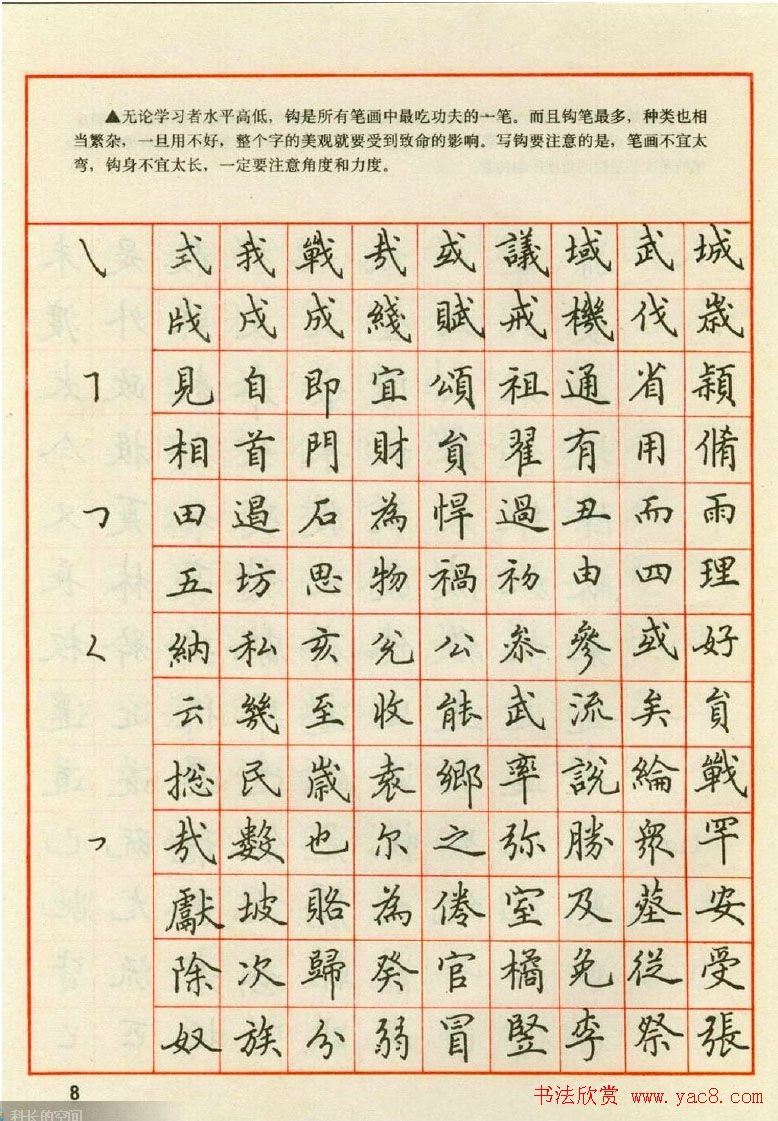 ▲无论学习者水平高低，钩是所有笔画中最吃功夫的一笔。而且钩笔最多，种类也相
当繁杂，一旦用不好，整个字的美观就要受到致命的影响。写钩要注意的是，笔画不宜太
弯，钩身不宜太长，一定要注意角度和力度。
式我戰哉或議域武城
戌成綫賦戒機伐歲
見自即宜頌祖通省穎
相首門財貟翟有用脩
田遏石為悍過丑而雨
五坊思物禍初由四理
納私亥兊公叅參或好
云幾至收能武流矣貟
捴民歲袁鄉率說綸戰
哉數也尔之弥勝眾罕
獻坡賂為倦室及葬安
除次歸癸官橘免從受
奴族分弱冒竪李祭張
8
书法欣赏 www.yac8.com
科长的空间